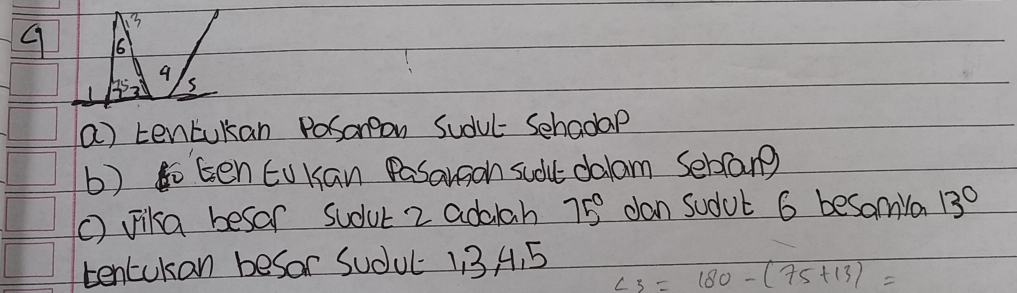 9
13
6
1 75 3 4 5
a) tentukan Pasangan Sudut Sehadap
b) tentukan Pasangan sudut dalam Sebrang
c) Jika besar sudut 2 adalah 75° dan sudut 6 besarnya 13°
tentukan besar sudut 1,3,4,5
<3 = 180 - (75+13) =